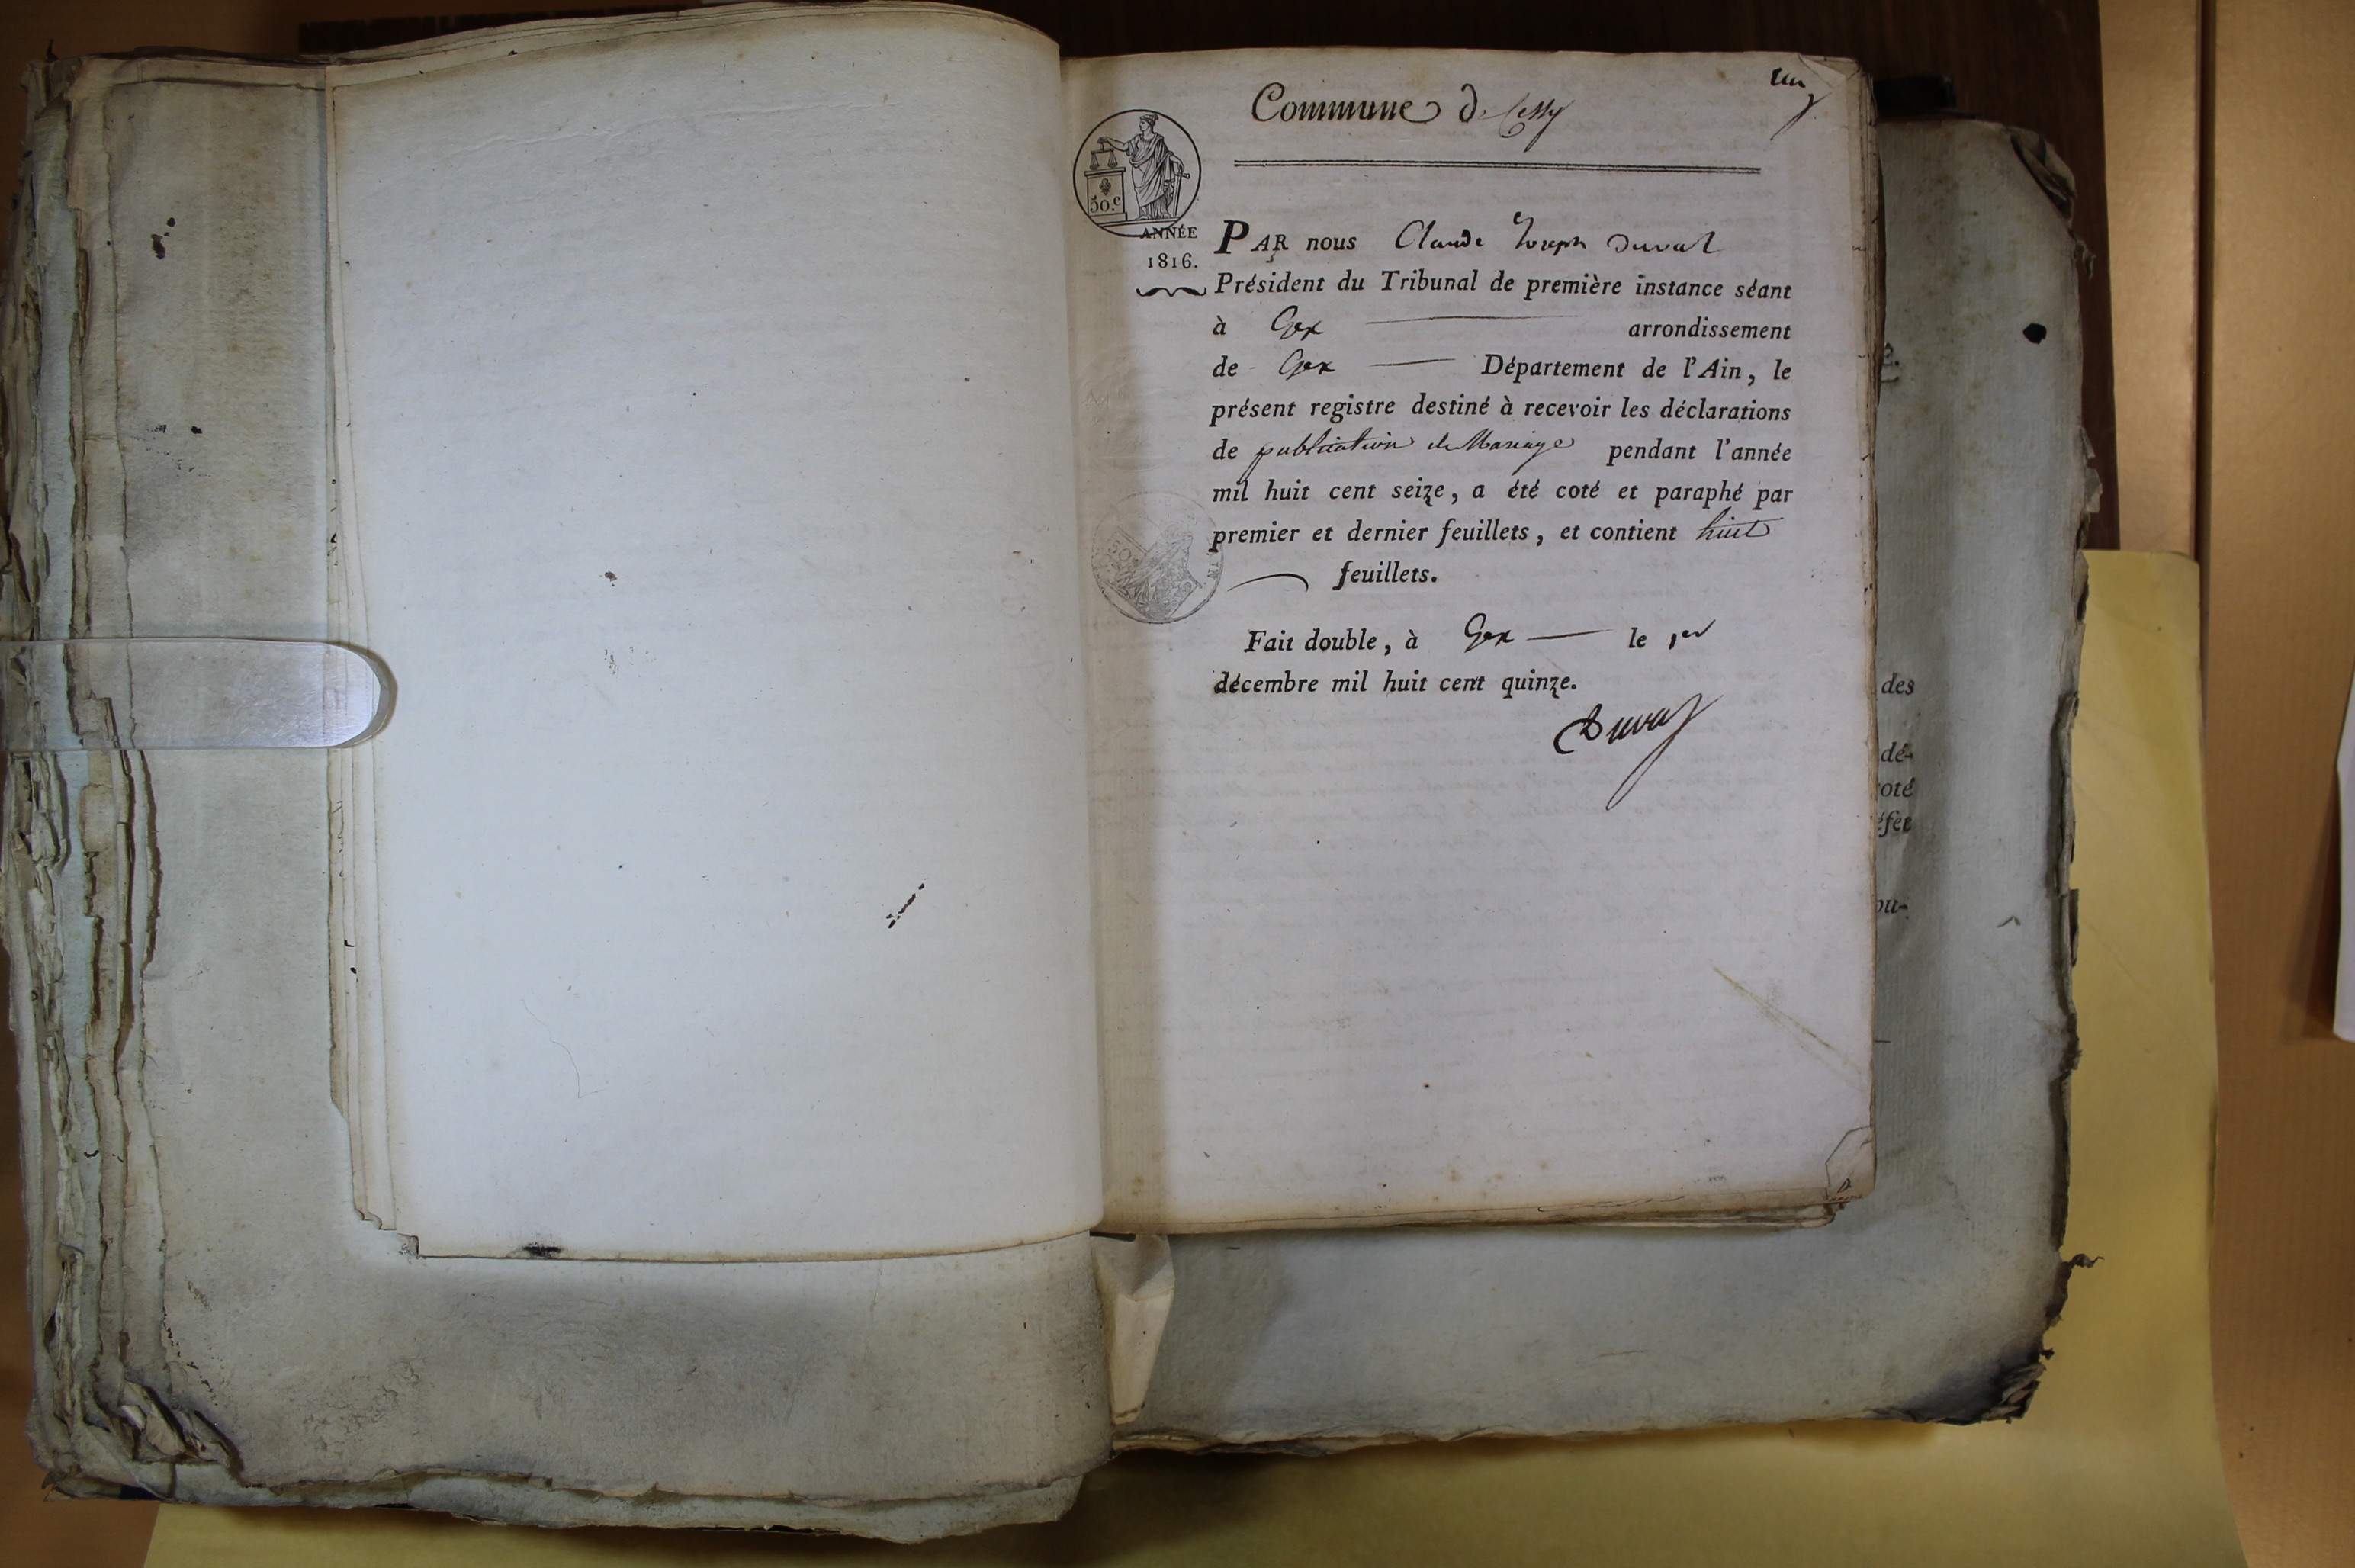 un
Commune de Cessy
50.c
ANNÉE
1816.
PAR nous Claude Joseph Duval
Président du Tribunal de première instance séant
à Gex arrondissement
de Gex Département de l'Ain, le
présent registre destiné à recevoir les déclarations
de publication de Mariage pendant l'année
mil huit cent seize, a été coté et paraphé par
premier et dernier feuillets, et contient huit
feuillets.
Fait double, à Gex le 1er
décembre mil huit cent quinze.
Duval
des
dé-
oté
éfet
ou-